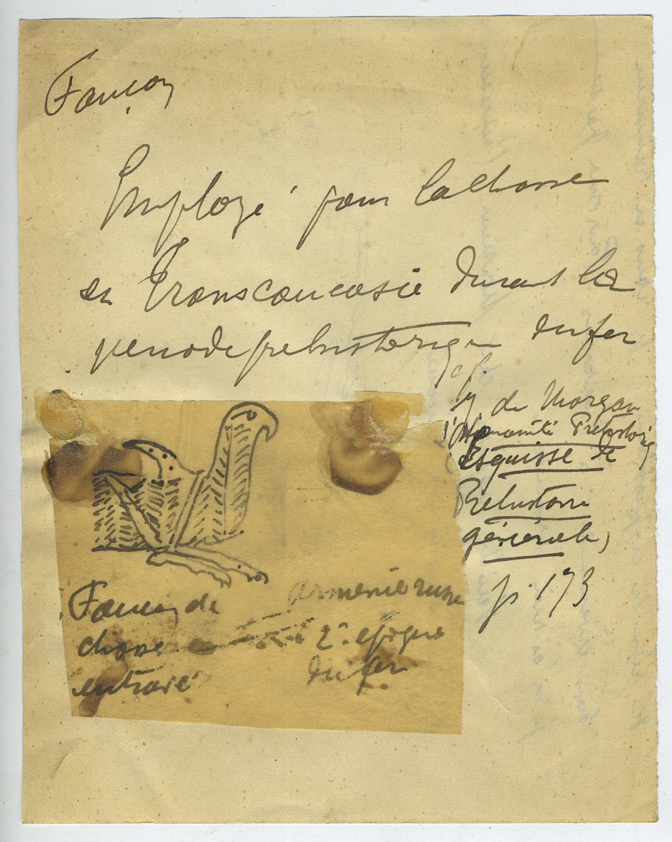 Faucon
Employé pour la chasse
en Transcaucasie durant la
periode prehistorique du fer
cf.
J de Morgan
l'Humanité Prehistoriq
Esquisse de
Prehistoire
générale,
p. 173
Faucon de
chasse
entravé
Armenie russe
2e epoque
du fer